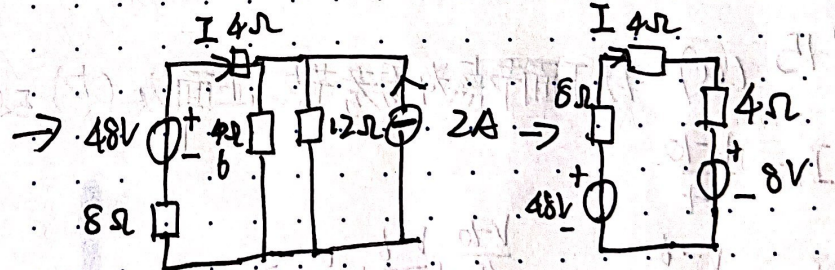 I 4Ω
→ 48V + - 6 12Ω 2A
8Ω
→ I 4Ω
8Ω 4Ω
48V + - + - 8V